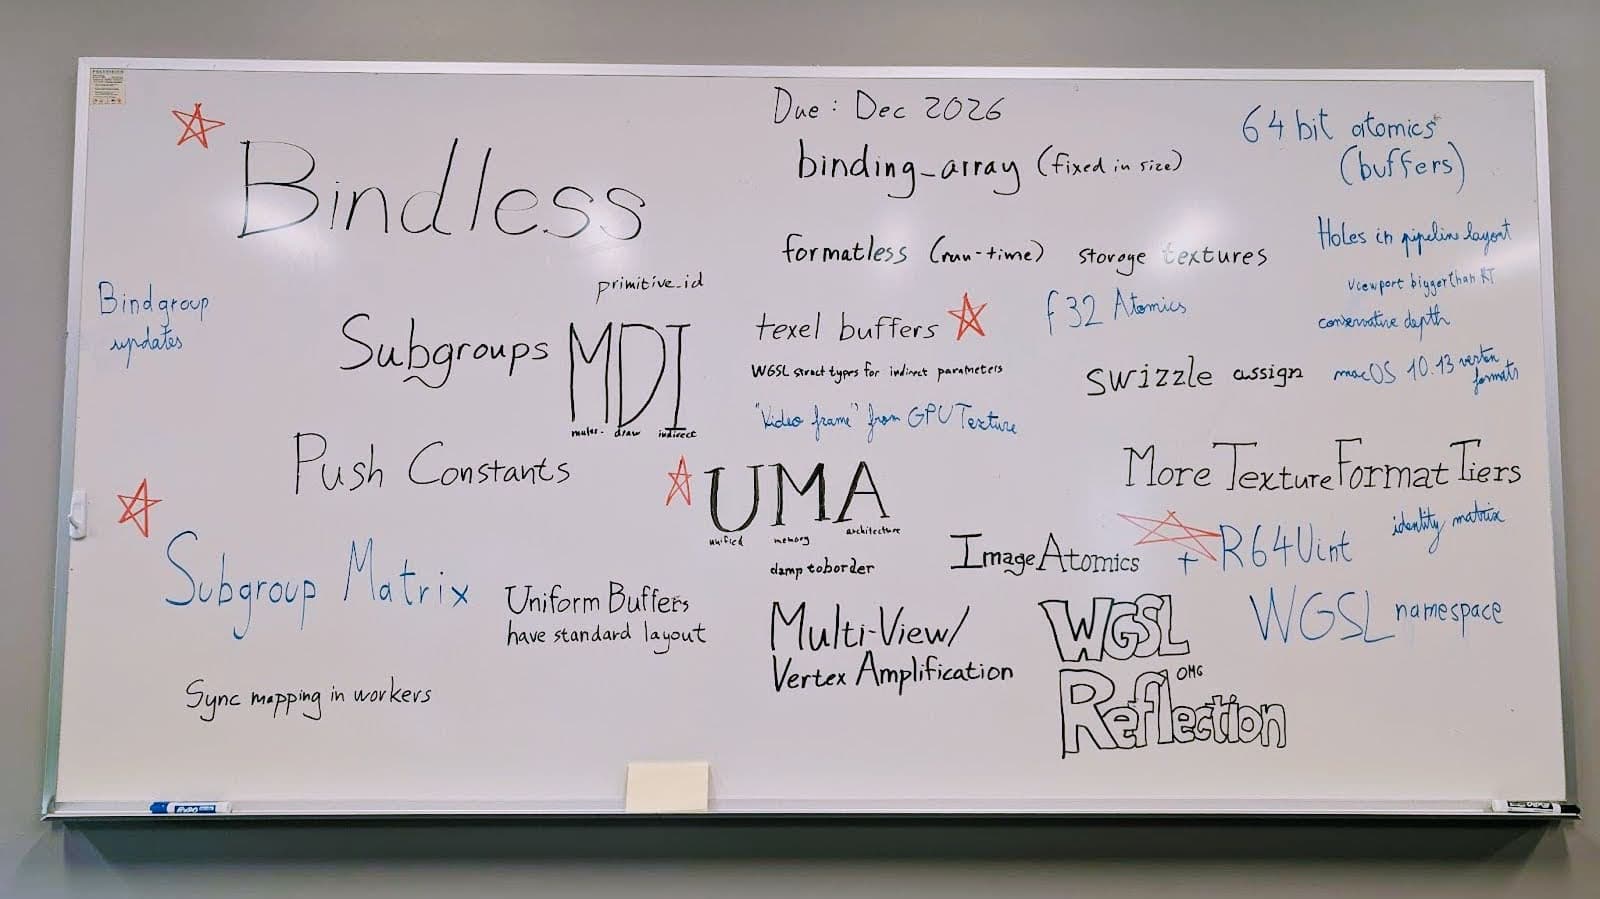 Due: Dec 2026
64 bit atomics
(buffers)
Bindless
binding_array (fixed in size)
formatless (run-time) storage textures
Holes in pipeline layout
viewport bigger than RT
conservative depth
macOS 10.13 vertex
formats
Bindgroup
updates
primitive_id
Subgroups
MDI
multi- draw indirect
texel buffers
f32 Atomics
WGSL struct types for indirect parameters
swizzle assign
"Video frame" from GPUTexture
Push Constants
UMA
unified memory architecture
More Texture Format Tiers
identity matrix
Image Atomics + R64Uint
Subgroup Matrix
clamp to border
Uniform Buffers
have standard layout
Multi-View/
Vertex Amplification
WGSL
OMG
Reflection
WGSL namespace
Sync mapping in workers
EXPO
EXPO